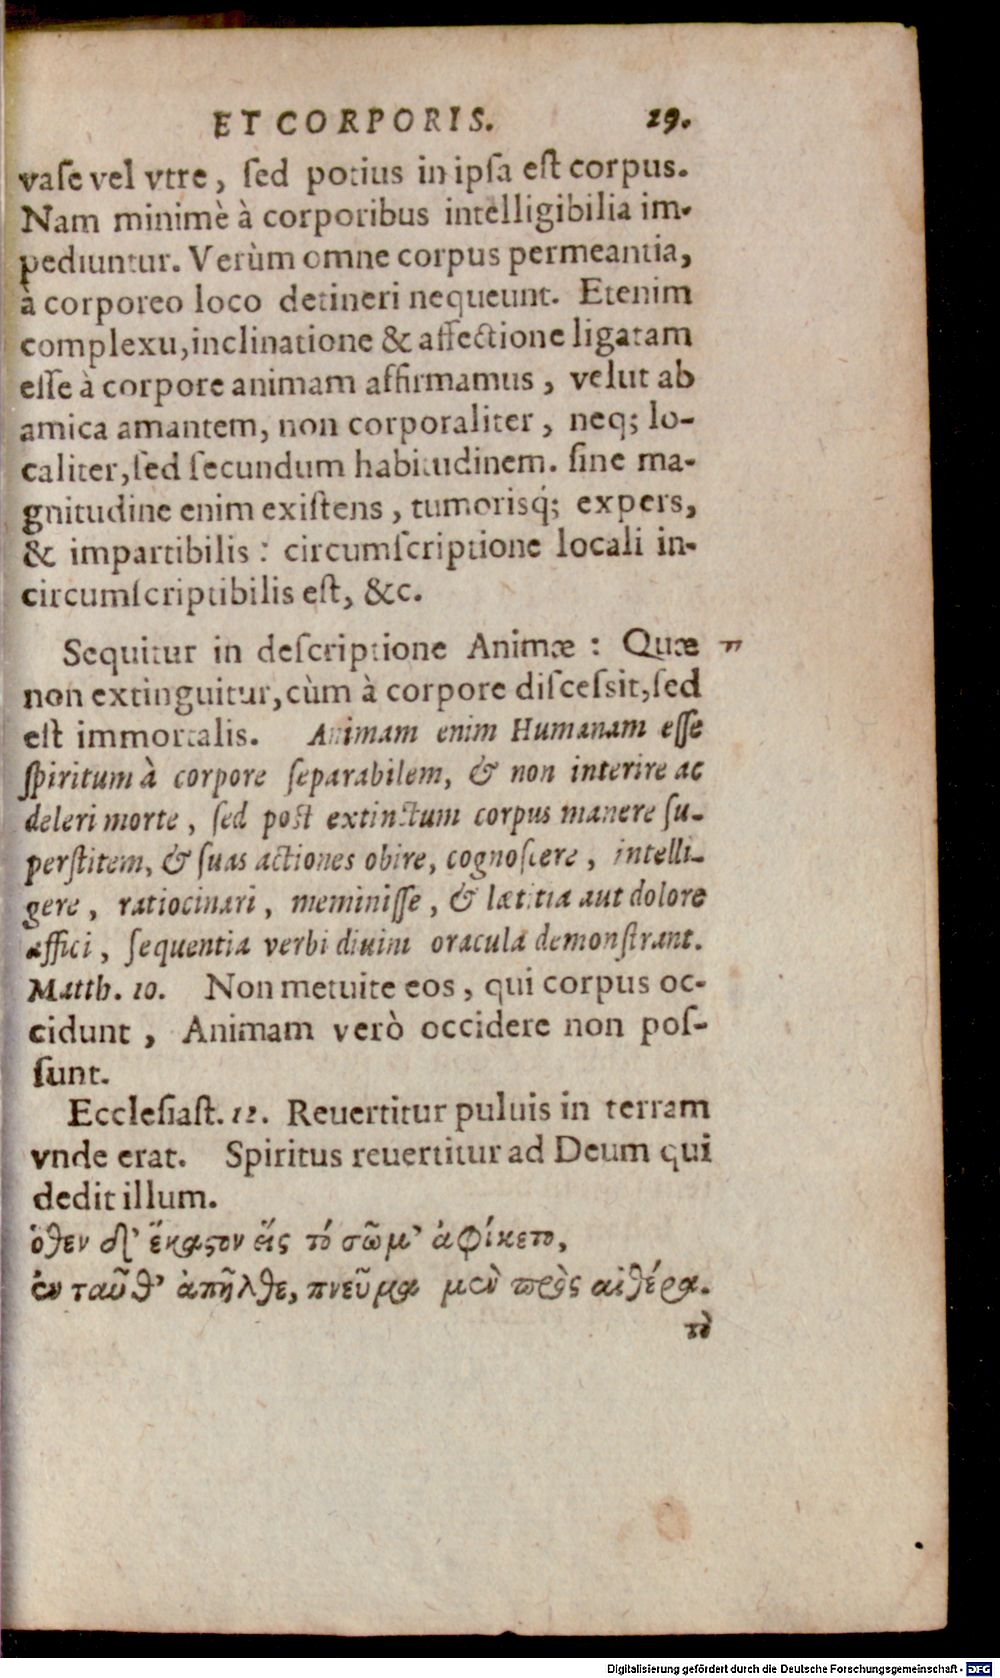 ET CORPORIS. 29.
vaſe vel vtre, ſed potius in ipſa eſt corpus.
Nam minimè à corporibus intelligibilia im-
pediuntur. Verùm omne corpus permeantia,
à corporeo loco detineri nequeunt. Etenim
complexu, inclinatione & affectione ligatam
eſſe à corpore animam affirmamus, velut ab
amica amantem, non corporaliter, neq; lo-
caliter, ſed ſecundum habitudinem. ſine ma-
gnitudine enim exiſtens, tumorisq́; expers,
& impartibilis: circumſcriptione locali in-
circumſcriptibilis eſt, &c.
Sequitur in deſcriptione Animæ: Quæ π
non extinguitur, cùm à corpore diſceſsit, ſed
eſt immortalis. Animam enim Humanam eſſe
ſpiritum à corpore ſeparabilem, & non interire ac
deleri morte, ſed poſt extinctum corpus manere ſu-
perſtitem, & ſuas actiones obire, cognoſcere, intelli-
gere, ratiocinari, meminiſſe, & lætitia aut dolore
affici, ſequentia verbi diuini oracula demonſtrant.
Matth. 10. Non metuite eos, qui corpus oc-
cidunt, Animam verò occidere non poſ-
ſunt.
Eccleſiaſt. 12. Reuertitur puluis in terram
vnde erat. Spiritus reuertitur ad Deum qui
dedit illum.
ὅθεν δ’ ἕκαστον εἰς τό σῶμ’ ἀφίκετο,
ἐν ταῦθ’ ἀπῆλθε, πνεῦμα μὲν πρὸς αἰθέρα.
τὸ
Digitalisierung gefördert durch die Deutsche Forschungsgemeinschaft - DFG